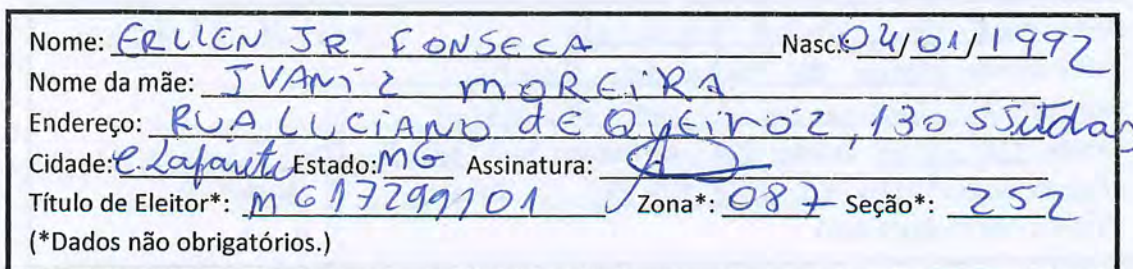 Nome: ERLLEN JR FONSECA Nasc: 04/01/1992
Nome da mãe: IVANIZ MOREIRA
Endereço: RUA LUCIANO dE QUEiroz, 130 S
Cidade: C. Lafaiete Estado: MG Assinatura:
Título de Eleitor*: MG17299101 Zona*: 087 Seção*: 252
(*Dados não obrigatórios.)